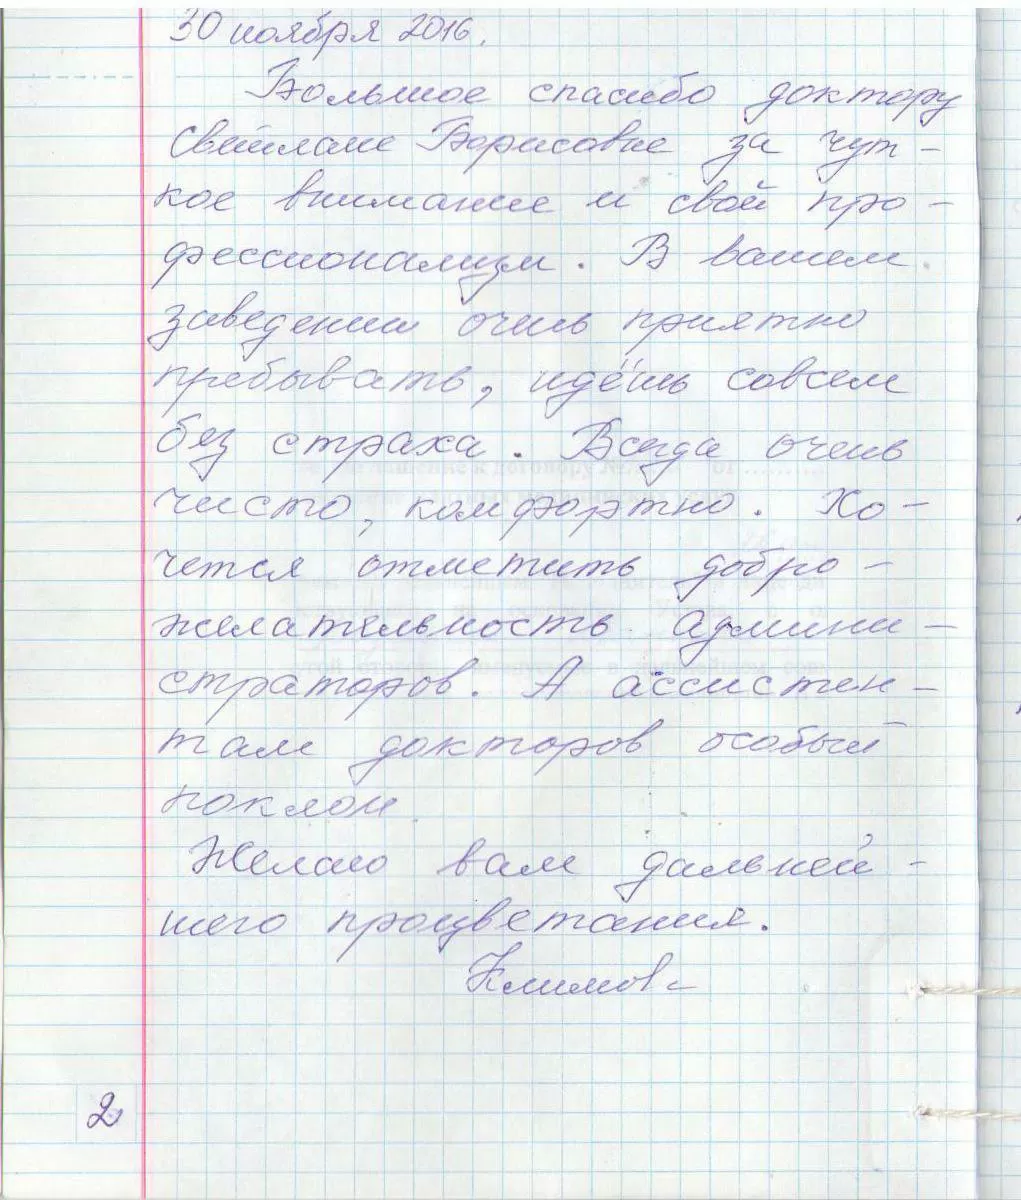 30 ноября 2016.
Большое спасибо доктору
Светлане Борисовне за чут-
кое внимание и свой про-
фессионализм. В вашем
заведении очень приятно
пребывать, идёшь совсем
без страха. Всегда очень
чисто, комфортно. Хо-
чется отметить добро-
желательность админи-
страторов. А ассистен-
там докторов особый
поклон
Желаю вам дальней-
шего процветания.
Климов-
2